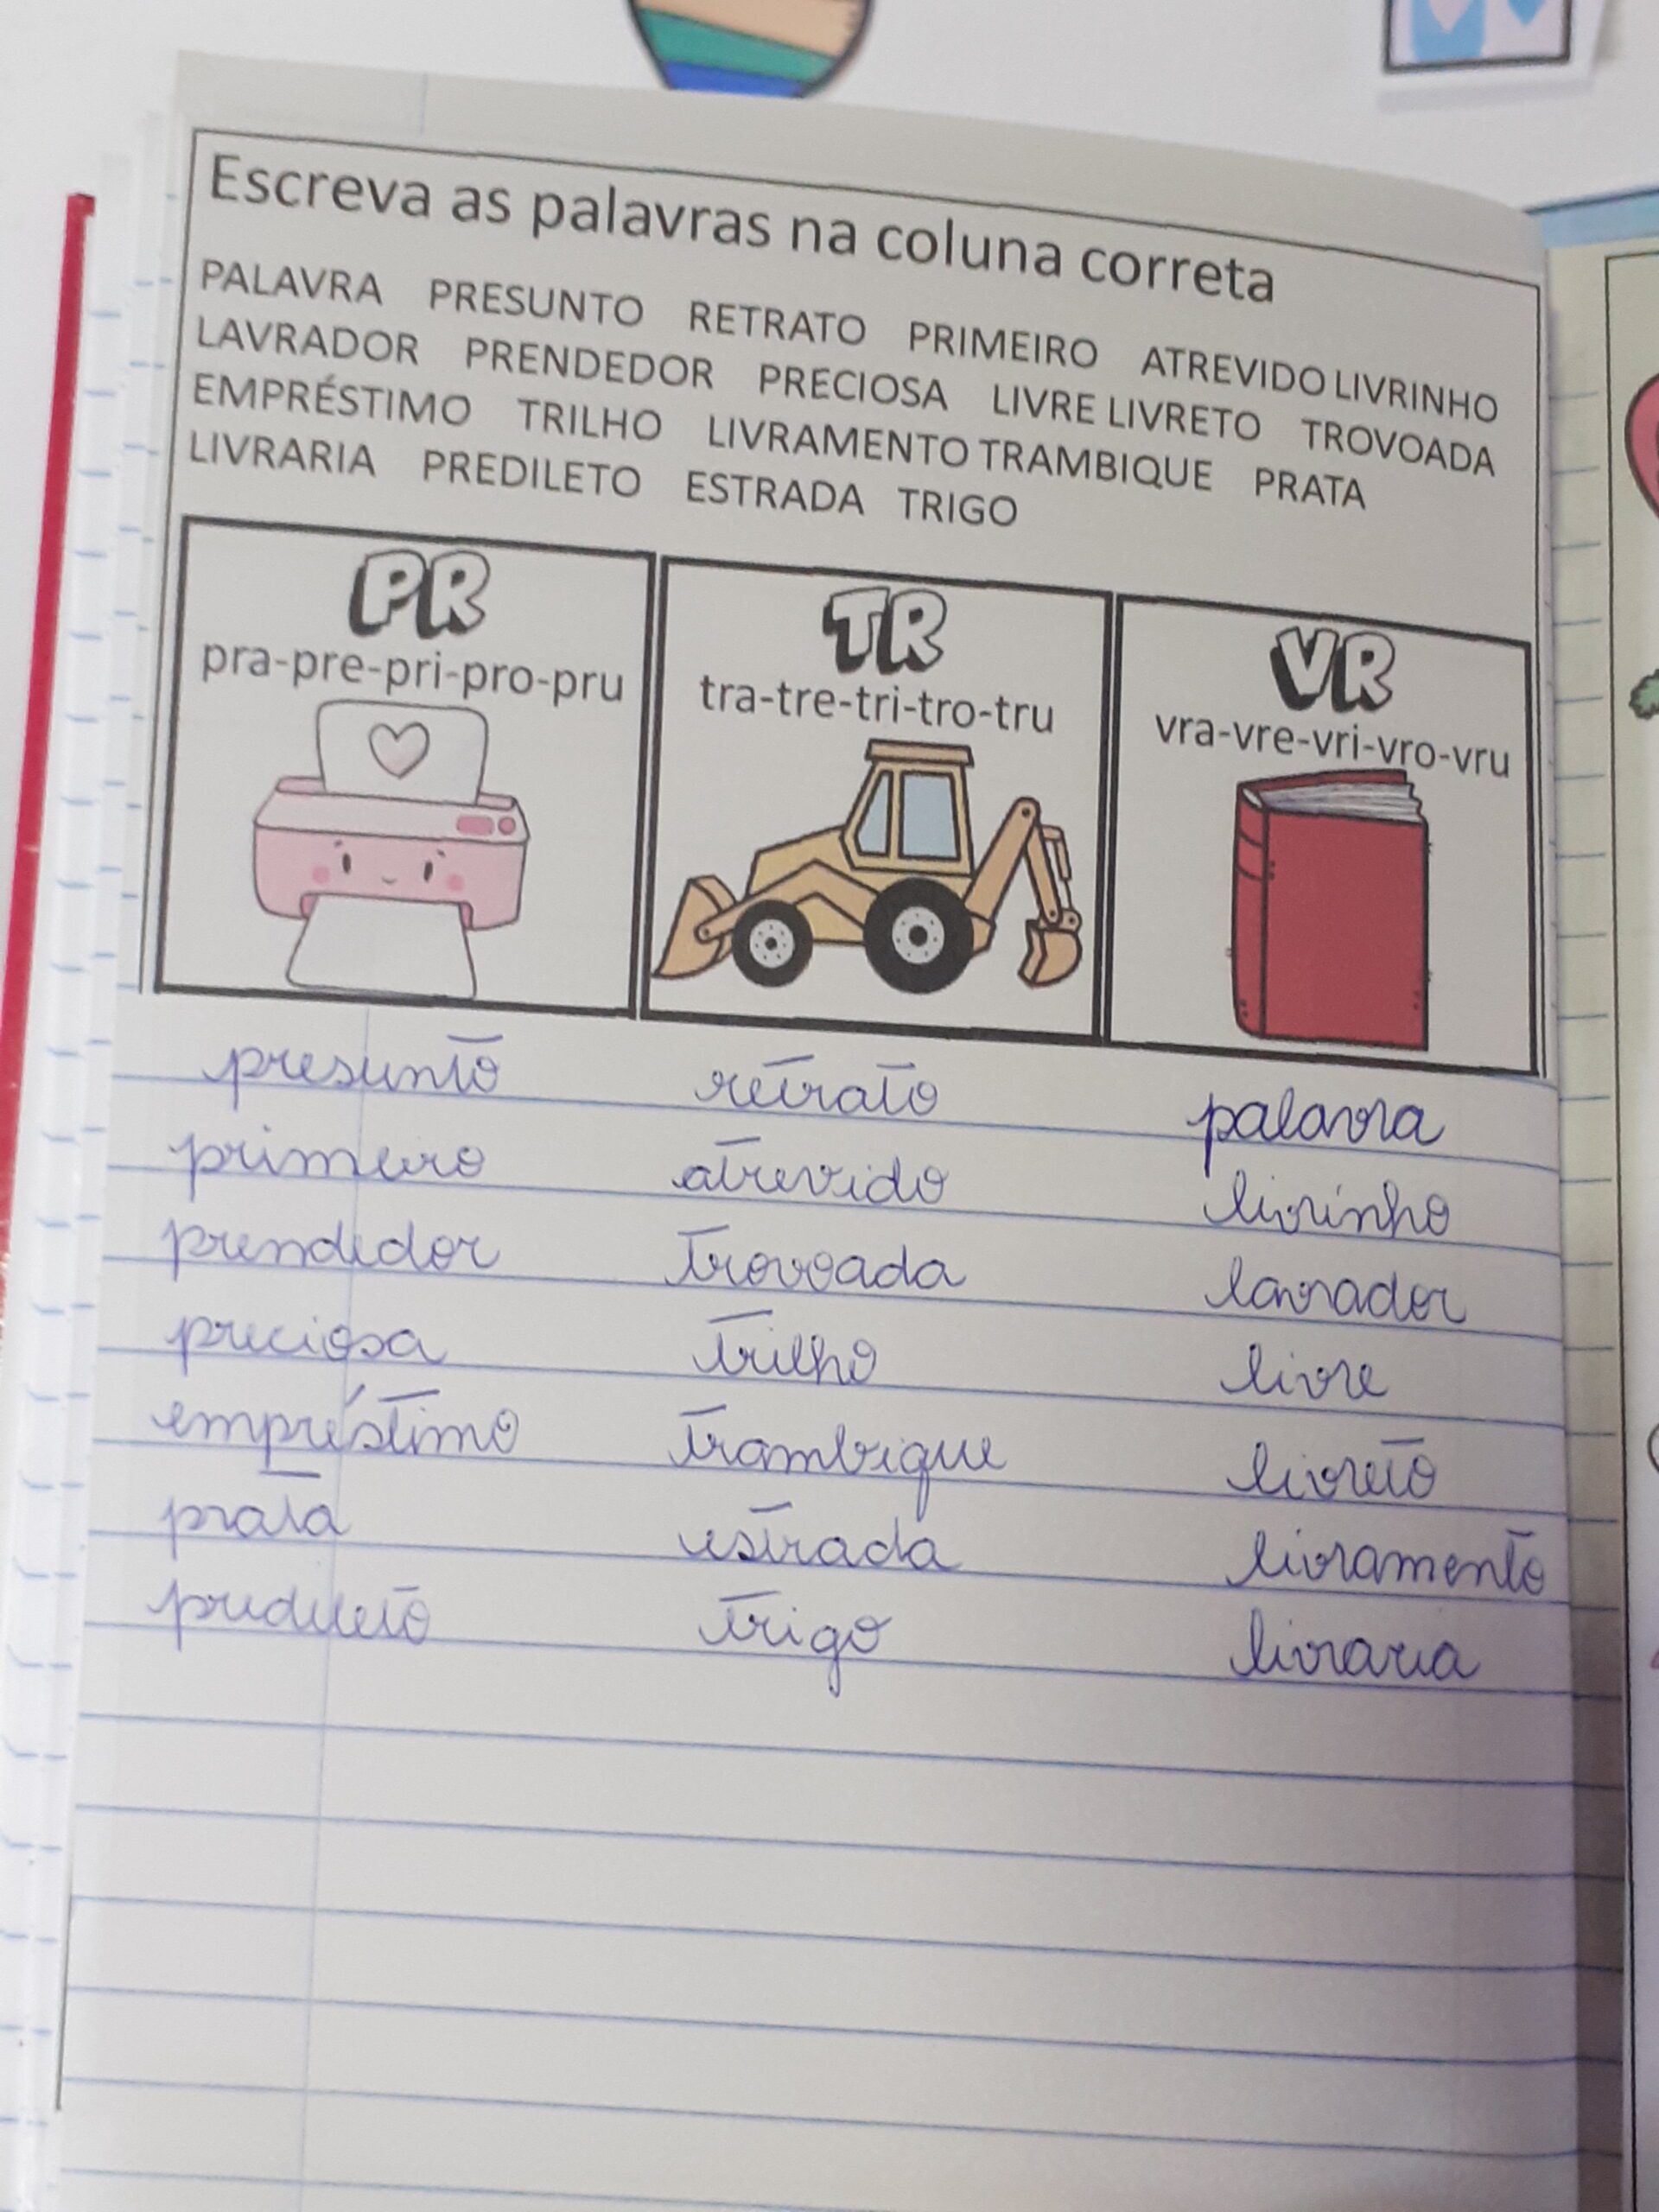 Escreva as palavras na coluna correta
PALAVRA PRESUNTO RETRATO PRIMEIRO ATREVIDO LIVRINHO
LAVRADOR PRENDEDOR PRECIOSA LIVRE LIVRETO TROVOADA
EMPRÉSTIMO TRILHO LIVRAMENTO TRAMBIQUE PRATA
LIVRARIA PREDILETO ESTRADA TRIGO
PR TR VR
pra-pre-pri-pro-pru tra-tre-tri-tro-tru vra-vre-vri-vro-vru
presunto retrato palavra
primeiro atrevido livrinho
prendedor trovoada lavrador
preciosa trilho livre
empréstimo trambique livreto
prata estrada livramento
predileto trigo livraria